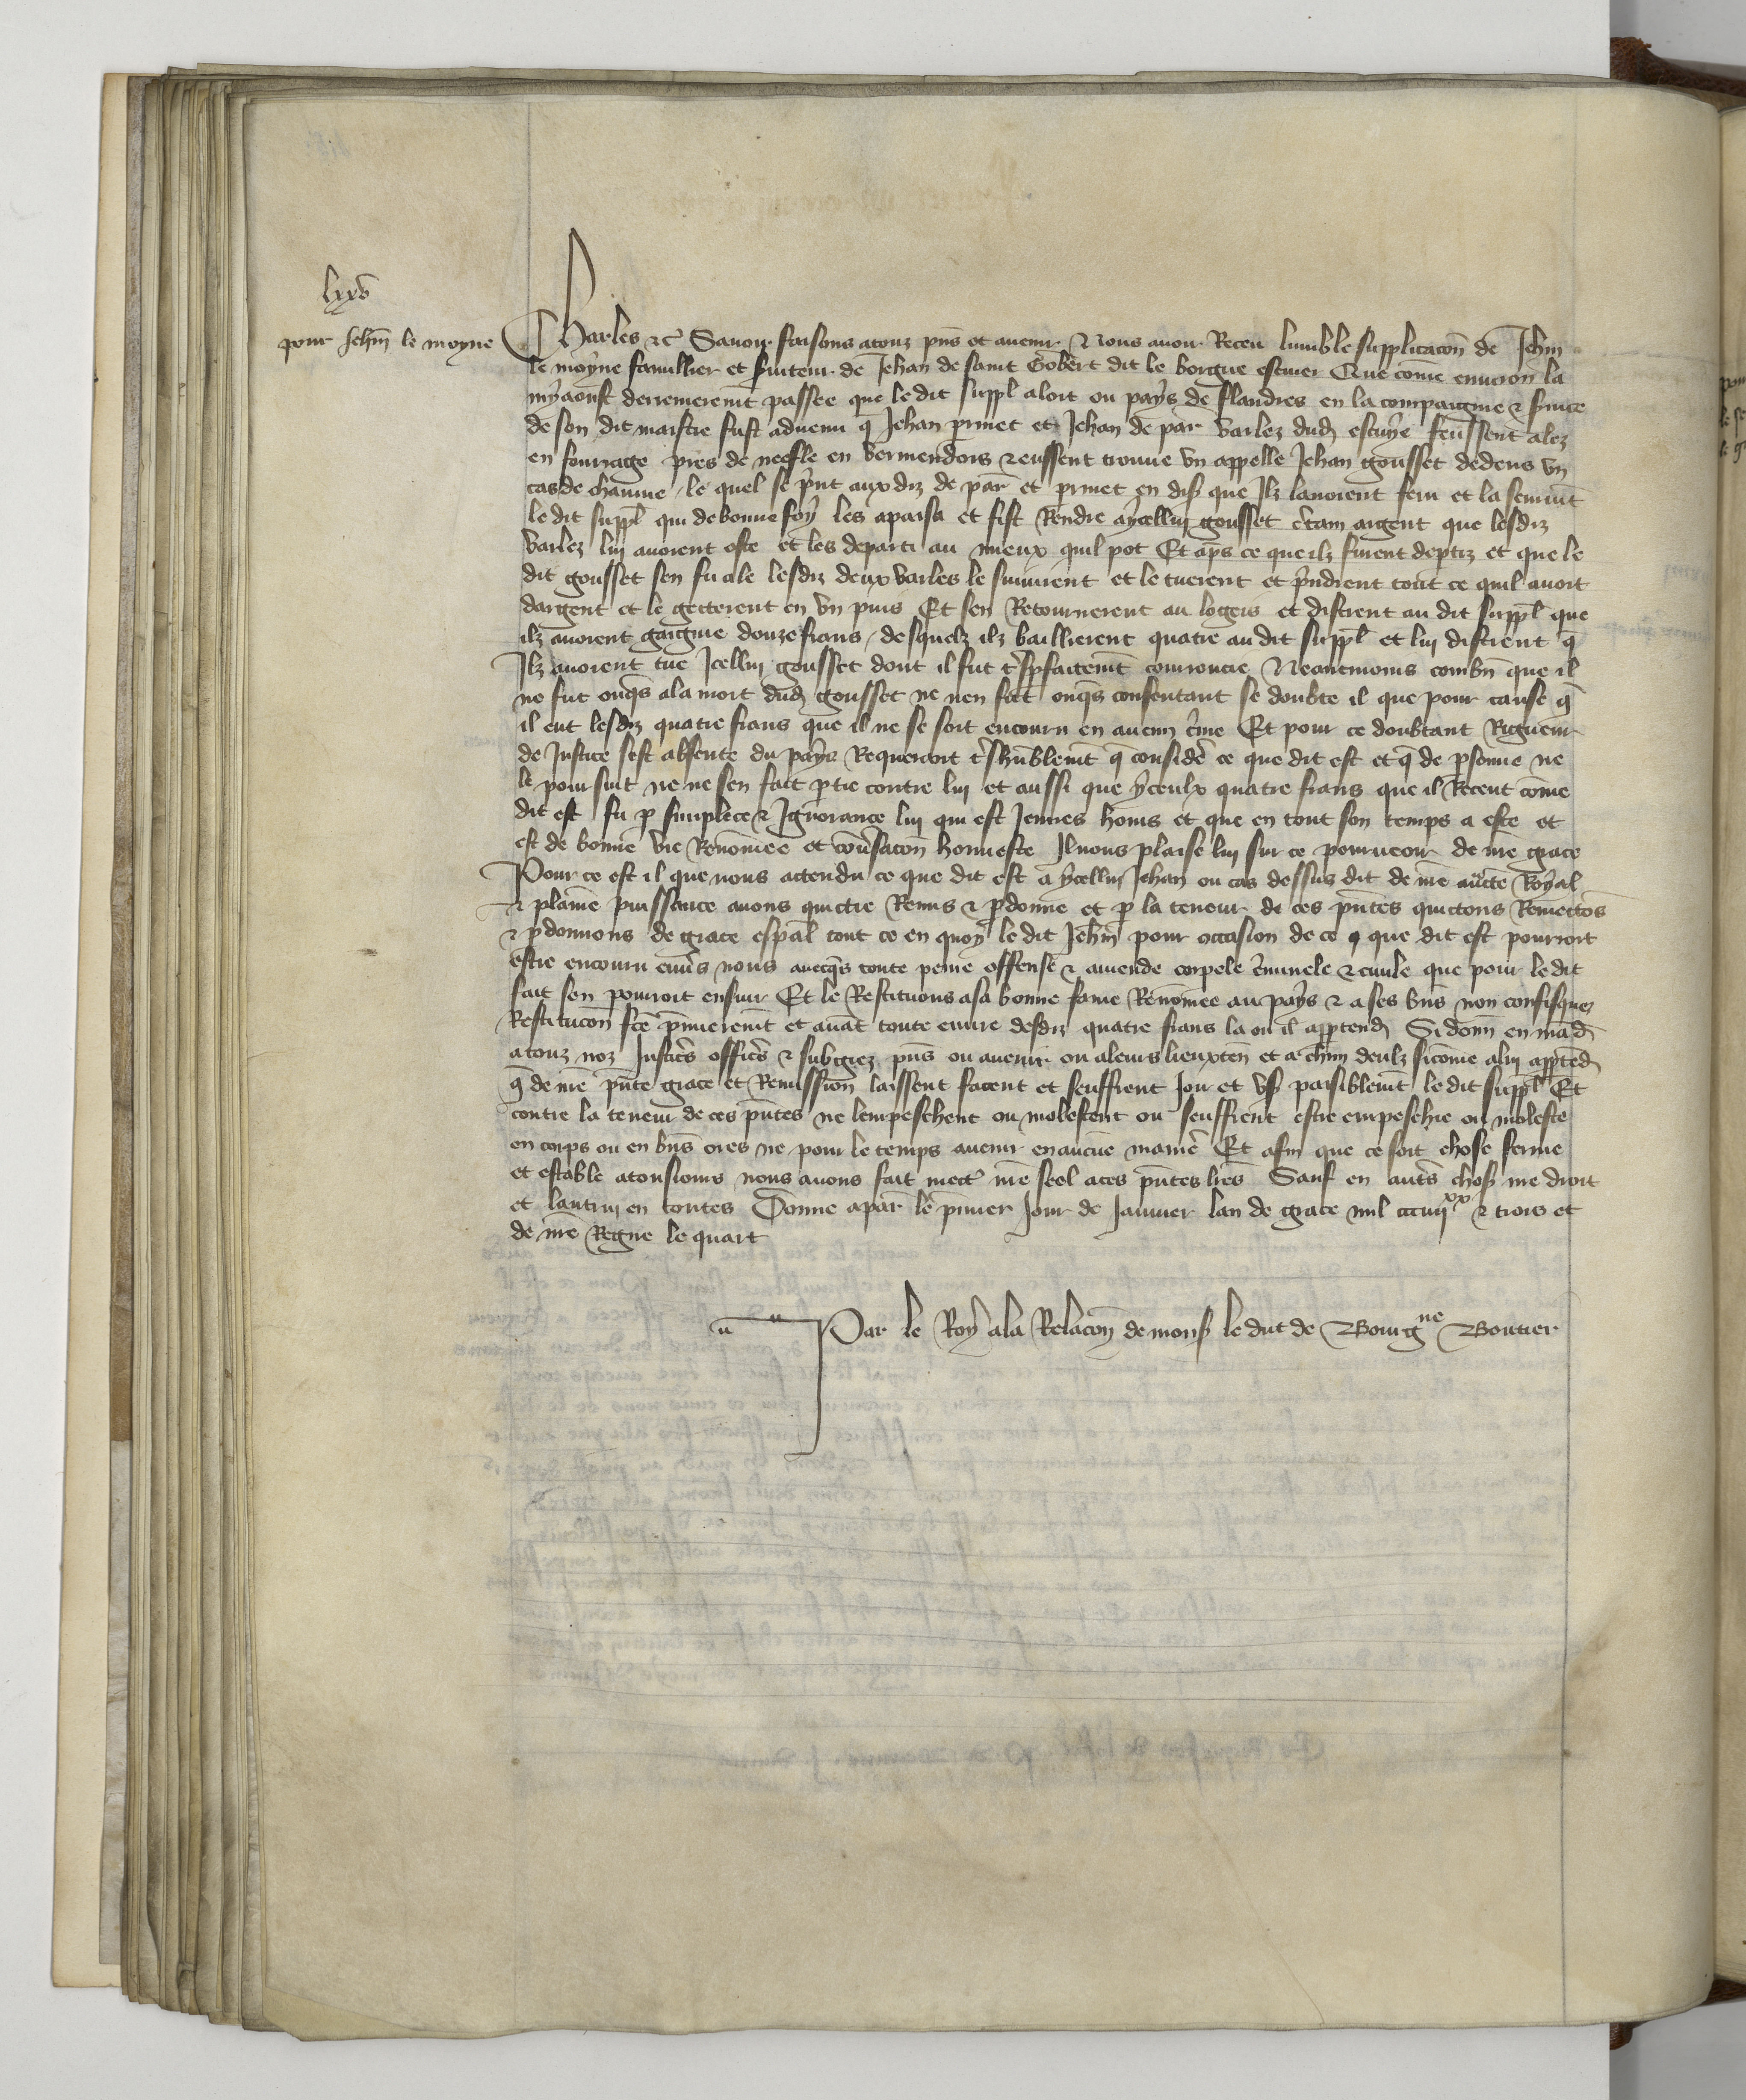 lxxv
pour Jehñ le moyne
Charles &c Savoir faisons a touz pñs et avenir Nous avoir Receu lumble supplicacõn de Jehñ
le moyne famillier et suiteur de Jehan de saint Gobert dit le borgne escuier Que cõme environ la
my aoust derrenierem̃t passee que le dit suppl̃ aloit ou pays de flandres en la compaignie & s̃vice
de son dit maistre fust advenu q̃ Jehan prinet et Jehan de par varlez dud escuyer feussent alez
en fourrage pres de neesle en vermendois & eussent trouve un appelle Jehan gousset dedens un
cas de chaume le quel se p̃nt aux diz de par et prinet en dis que Ilz lavoient feru et la seurvĩt
le dit suppl̃ qui de bonne foy les apaisa et fist Rendre a ycellui gousset c̃tain argent que lesdiz
varlez lui avoient oste et les departi au mieux quil pot Et ap̃s ce que ilz furent dep̃tiz et que le
dit gousset sen fu ale lesdiz deux varles le suivirent et le tuerent et p̃ndrent tout ce quil avoit
dargent et le getterent en un puis Et sen Retournerent au logeis et distrent au dit suppl̃ que
ilz avoient gaignie douze frans desquelz ilz baillierent quatre au dit suppl̃ et lui distrent q̃
Ilz avoient tue Icellui gousset dont il fut t̃sp̃faitem̃t courroucie Neantmoins combñ que il
ne fut onq̃s a la mort dud gousset ne nen fust onq̃s consentant se doubte il que pour cause q̃
il eut lesdiz quatre frans que il ne se soit encouru en aucun c̃me Et pour ce doubtant Rigueur
de Justice sest absente du pays Requerant t̃shũblem̃t q̃ considẽ ce que dit est et q̃ de p̃sonne ne
le poursuit ne ne sen fait p̃tie contre lui et aussi que yceulx quatre frans que il Recut cõme
dit est fu p̃ simplece & Ignorance lui qui est Jeunes homs et que en tout son temps a este et
est de bonne vie Renõmee et cõṽsacõn honneste Il nous plaise lui sur ce pourveoir de nr̃e grace
Pour ce est il que nous attendu ce que dit est a ycellui Jehan ou cas dessus dit de nr̃e auct̃e Royal
& plaine puissance avons quictie Remis & p̃donne et p̃ la teneur de ces p̃ntes quictons Remectõs
& p̃donnons de grace esp̃al tout ce en quoy le dit Jehñ pour occasion de ce que dit est pourroit
estre encouru enṽs nous avecq̃s toute peine offense & amende corpele c̃minele & civile que pour le dit
fait sen pourroit ensuir Et le Restituons a sa bonne fame Renõmee au pays & a ses bñs non confisquez
Restitucõn fc̃e p̃mierem̃t et avãt toute euvre desdiz quatre frans la ou il app̃tend Si donñ en mãd
a touz noz Justic̃s offic̃s & subgiez pñs ou avenir ou a leurs lieuxteñ et a chũn deulz sicõme a lui app̃ted
q̃ de nr̃e p̃nte grace et Remission laissent facent et seuffrent Joir et us̃ paisiblem̃t le dit suppl̃ Et
contre la teneur de ces p̃ntes ne lempeschent ou molestent ou seuffrent estre empeschie ou moleste
en corps ou en bñs ores ne pour le temps avenir en aucune maniẽ Et afin que ce soit chose ferme
et estable a tousiours nous avons fait mectr̃ nr̃e seel a ces p̃ntes lr̃es Sauf en aut̃s chos̃ nr̃e droit
et lautrui en toutes Donne a par̃ le p̃mier Jour de Janvier lan de grace mil ccciiij xx & trois et
de nr̃e Regne le quart
Par le Roy a la Relacõn de mons̃ le duc de Bourgne Boutier